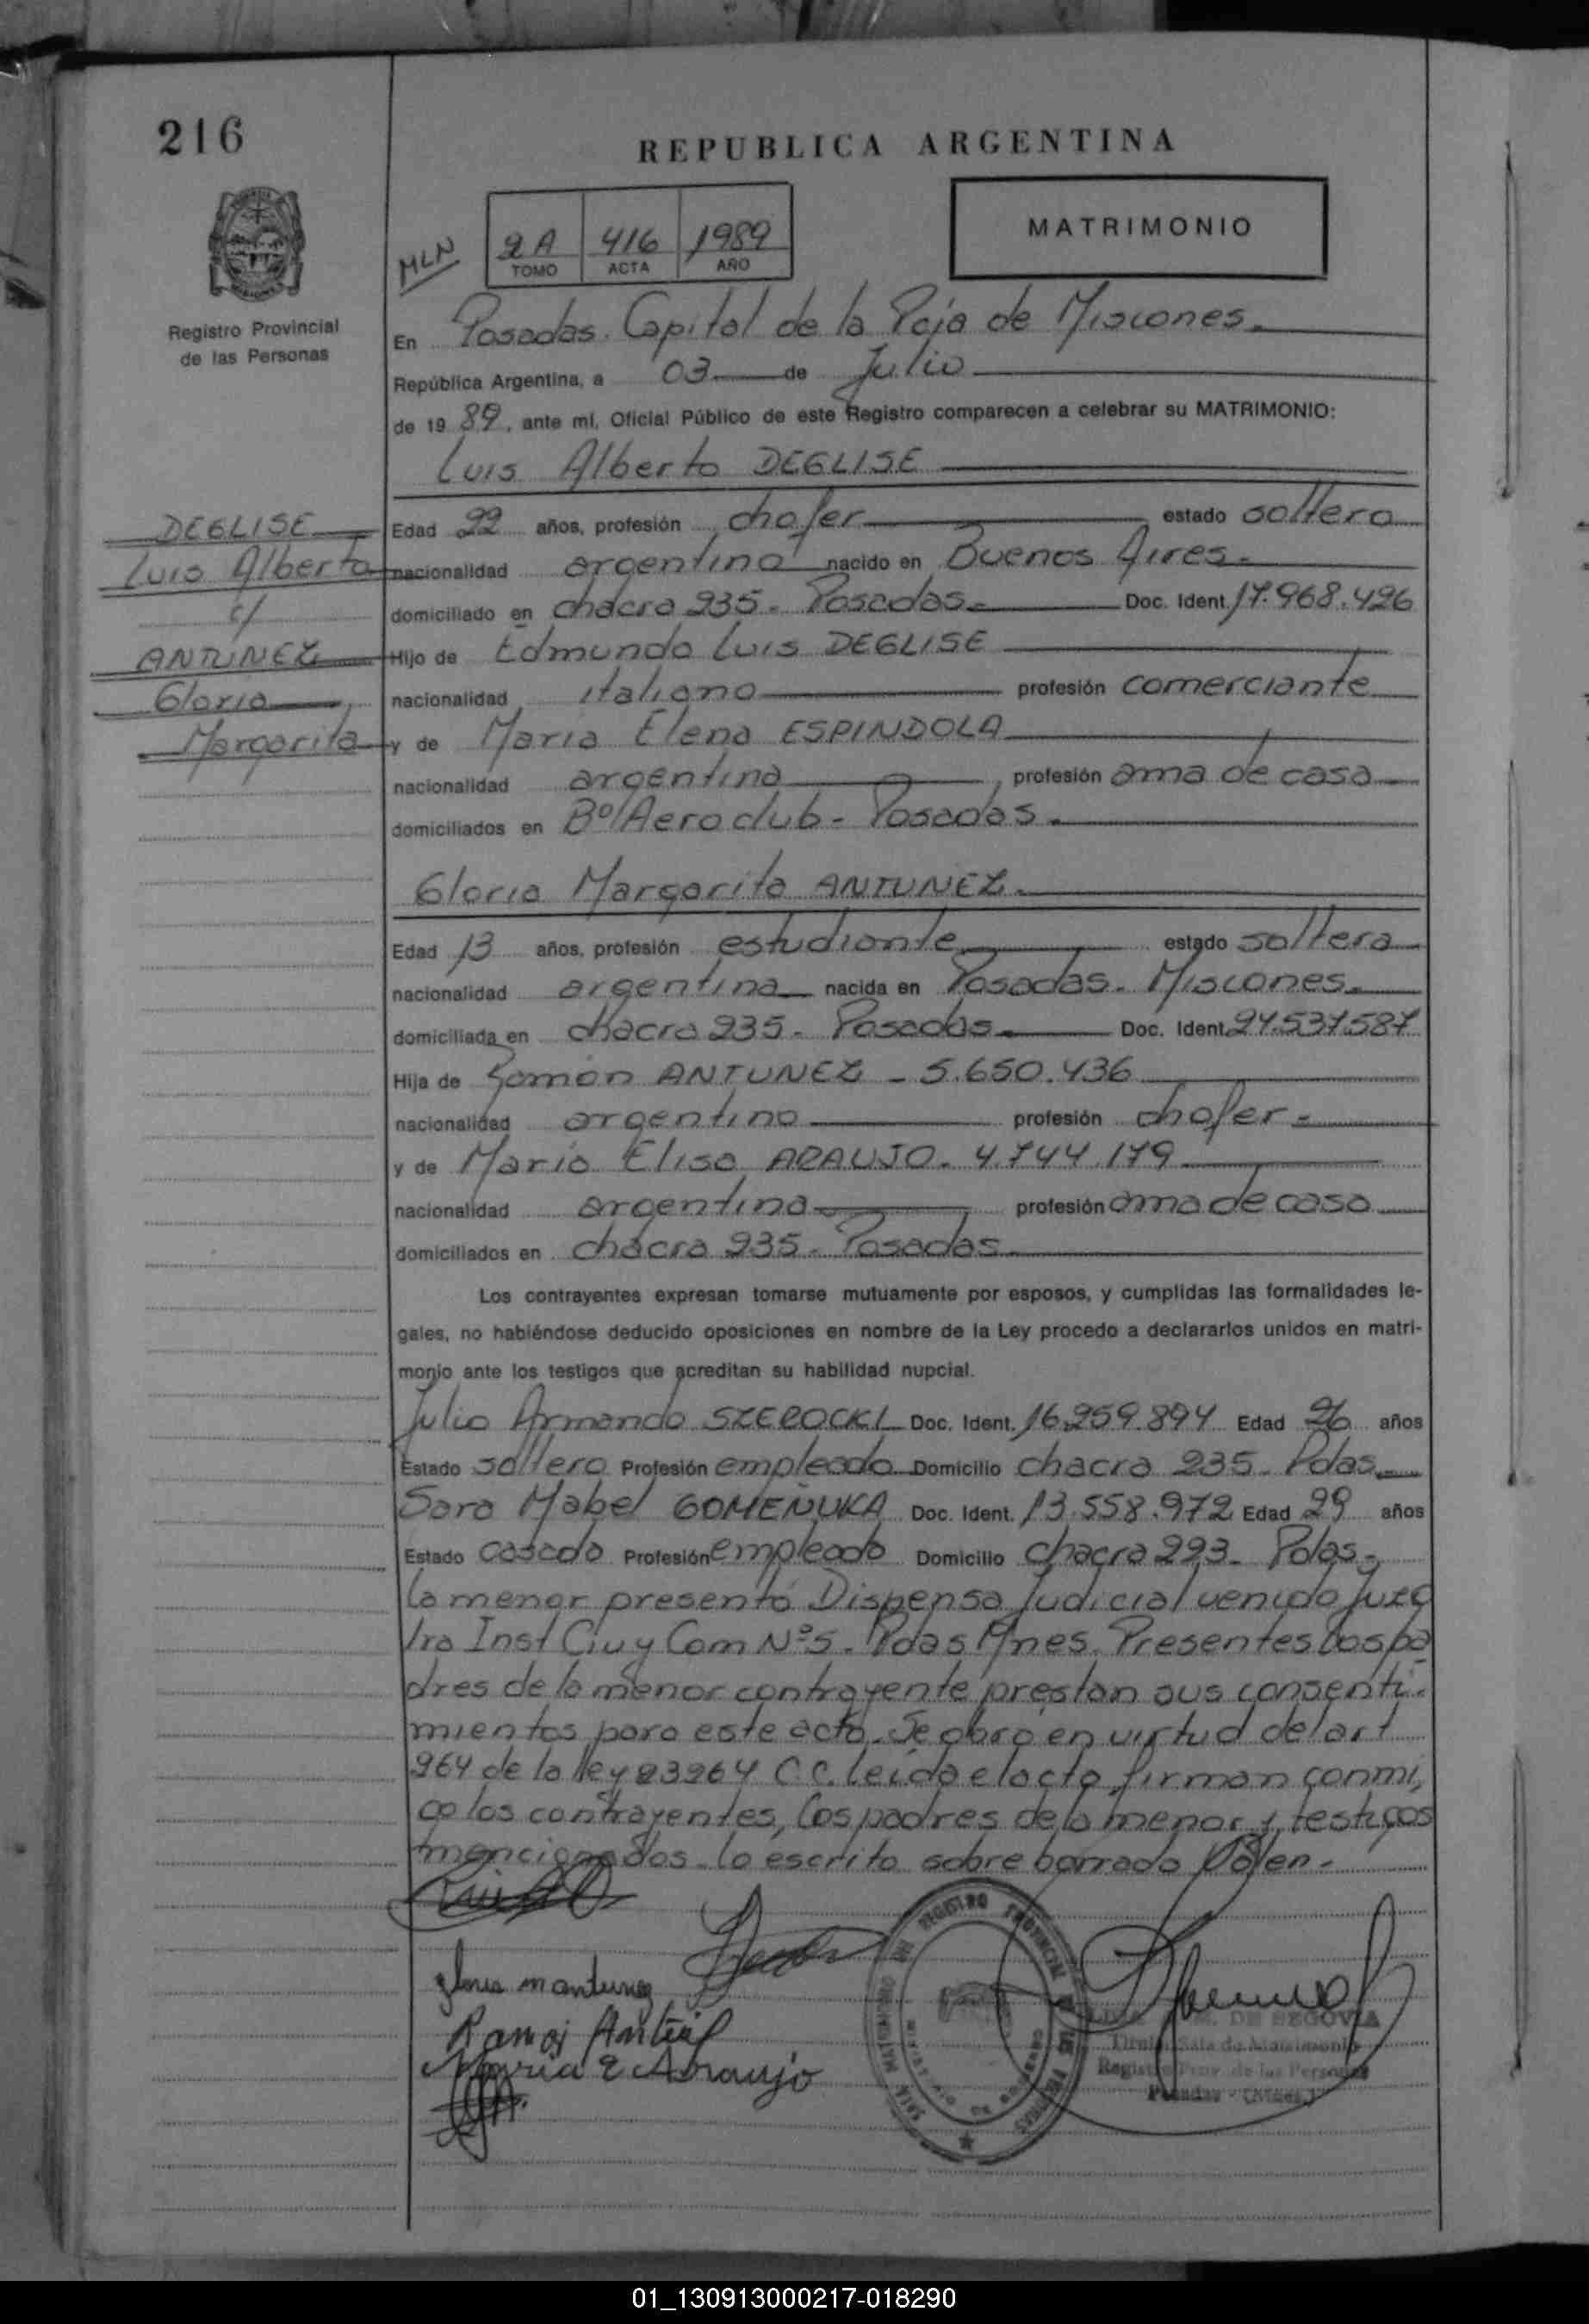 216
REPUBLICA ARGENTINA
MATRIMONIO
MLN
2A 416 1989
TOMO ACTA AÑO
Registro Provincial
de las Personas
En Posadas. Capital de la Pcia de Misiones.
República Argentina, a 03 de Julio
de 19 89, ante mí, Oficial Público de este Registro comparecen a celebrar su MATRIMONIO:
Luis Alberto DEGLISE
DEGLISE
Luis Alberto
c/
ANTUNEZ
Gloria
Margarita
Edad 22 años, profesión chofer estado soltero
nacionalidad argentino nacido en Buenos Aires.
domiciliado en chacra 235. Posadas. Doc. Ident. 17.968.426
Hijo de Edmundo Luis DEGLISE
nacionalidad italiano profesión comerciante
y de Maria Elena ESPINDOLA
nacionalidad argentina profesión ama de casa
domiciliados en Bº Aeroclub - Posadas.
Gloria Margarita ANTUNEZ.
Edad 13 años, profesión estudiante estado soltera
nacionalidad argentina nacida en Posadas. Misiones.
domiciliada en chacra 235. Posadas. Doc. Ident. 24.537.587
Hija de Ramón ANTUNEZ - 5.650.436
nacionalidad argentino profesión chofer.
y de Maria Elisa ARAUJO. 4.744.179
nacionalidad argentina profesión ama de casa
domiciliados en chacra 235. Posadas
Los contrayentes expresan tomarse mutuamente por esposos, y cumplidas las formalidades le-
gales, no habiéndose deducido oposiciones en nombre de la Ley procedo a declararlos unidos en matri-
monio ante los testigos que acreditan su habilidad nupcial.
Julio Armando SZEROCKI Doc. Ident. 16.259.894 Edad 26 años
Estado soltero Profesión empleado Domicilio chacra 235. Pdas.
Sara Mabel GOMEÑUKA Doc. Ident. 13.558.972 Edad 29 años
Estado casada Profesión empleada Domicilio chacra 223. Pdas.
la menor presentó Dispensa Judicial venida Juzg
1ra Inst Civ y Com Nº5. Pdas Mnes. Presentes los pa
dres de la menor contrayente prestan sus consenti.
mientos para este acto. Se obró en virtud del art
264 de la ley 23264 C.C. leida el acta, firman conmi,
go los contrayentes, los padres de la menor y testigos
mencionados. lo escrito sobre borrado Valen.
Ramon
Maria E Araujo
M. DE SEGOVIA
Titular Sala de Matrimonio
Registro Prov. de las Personas
Posadas
01_130913000217-018290